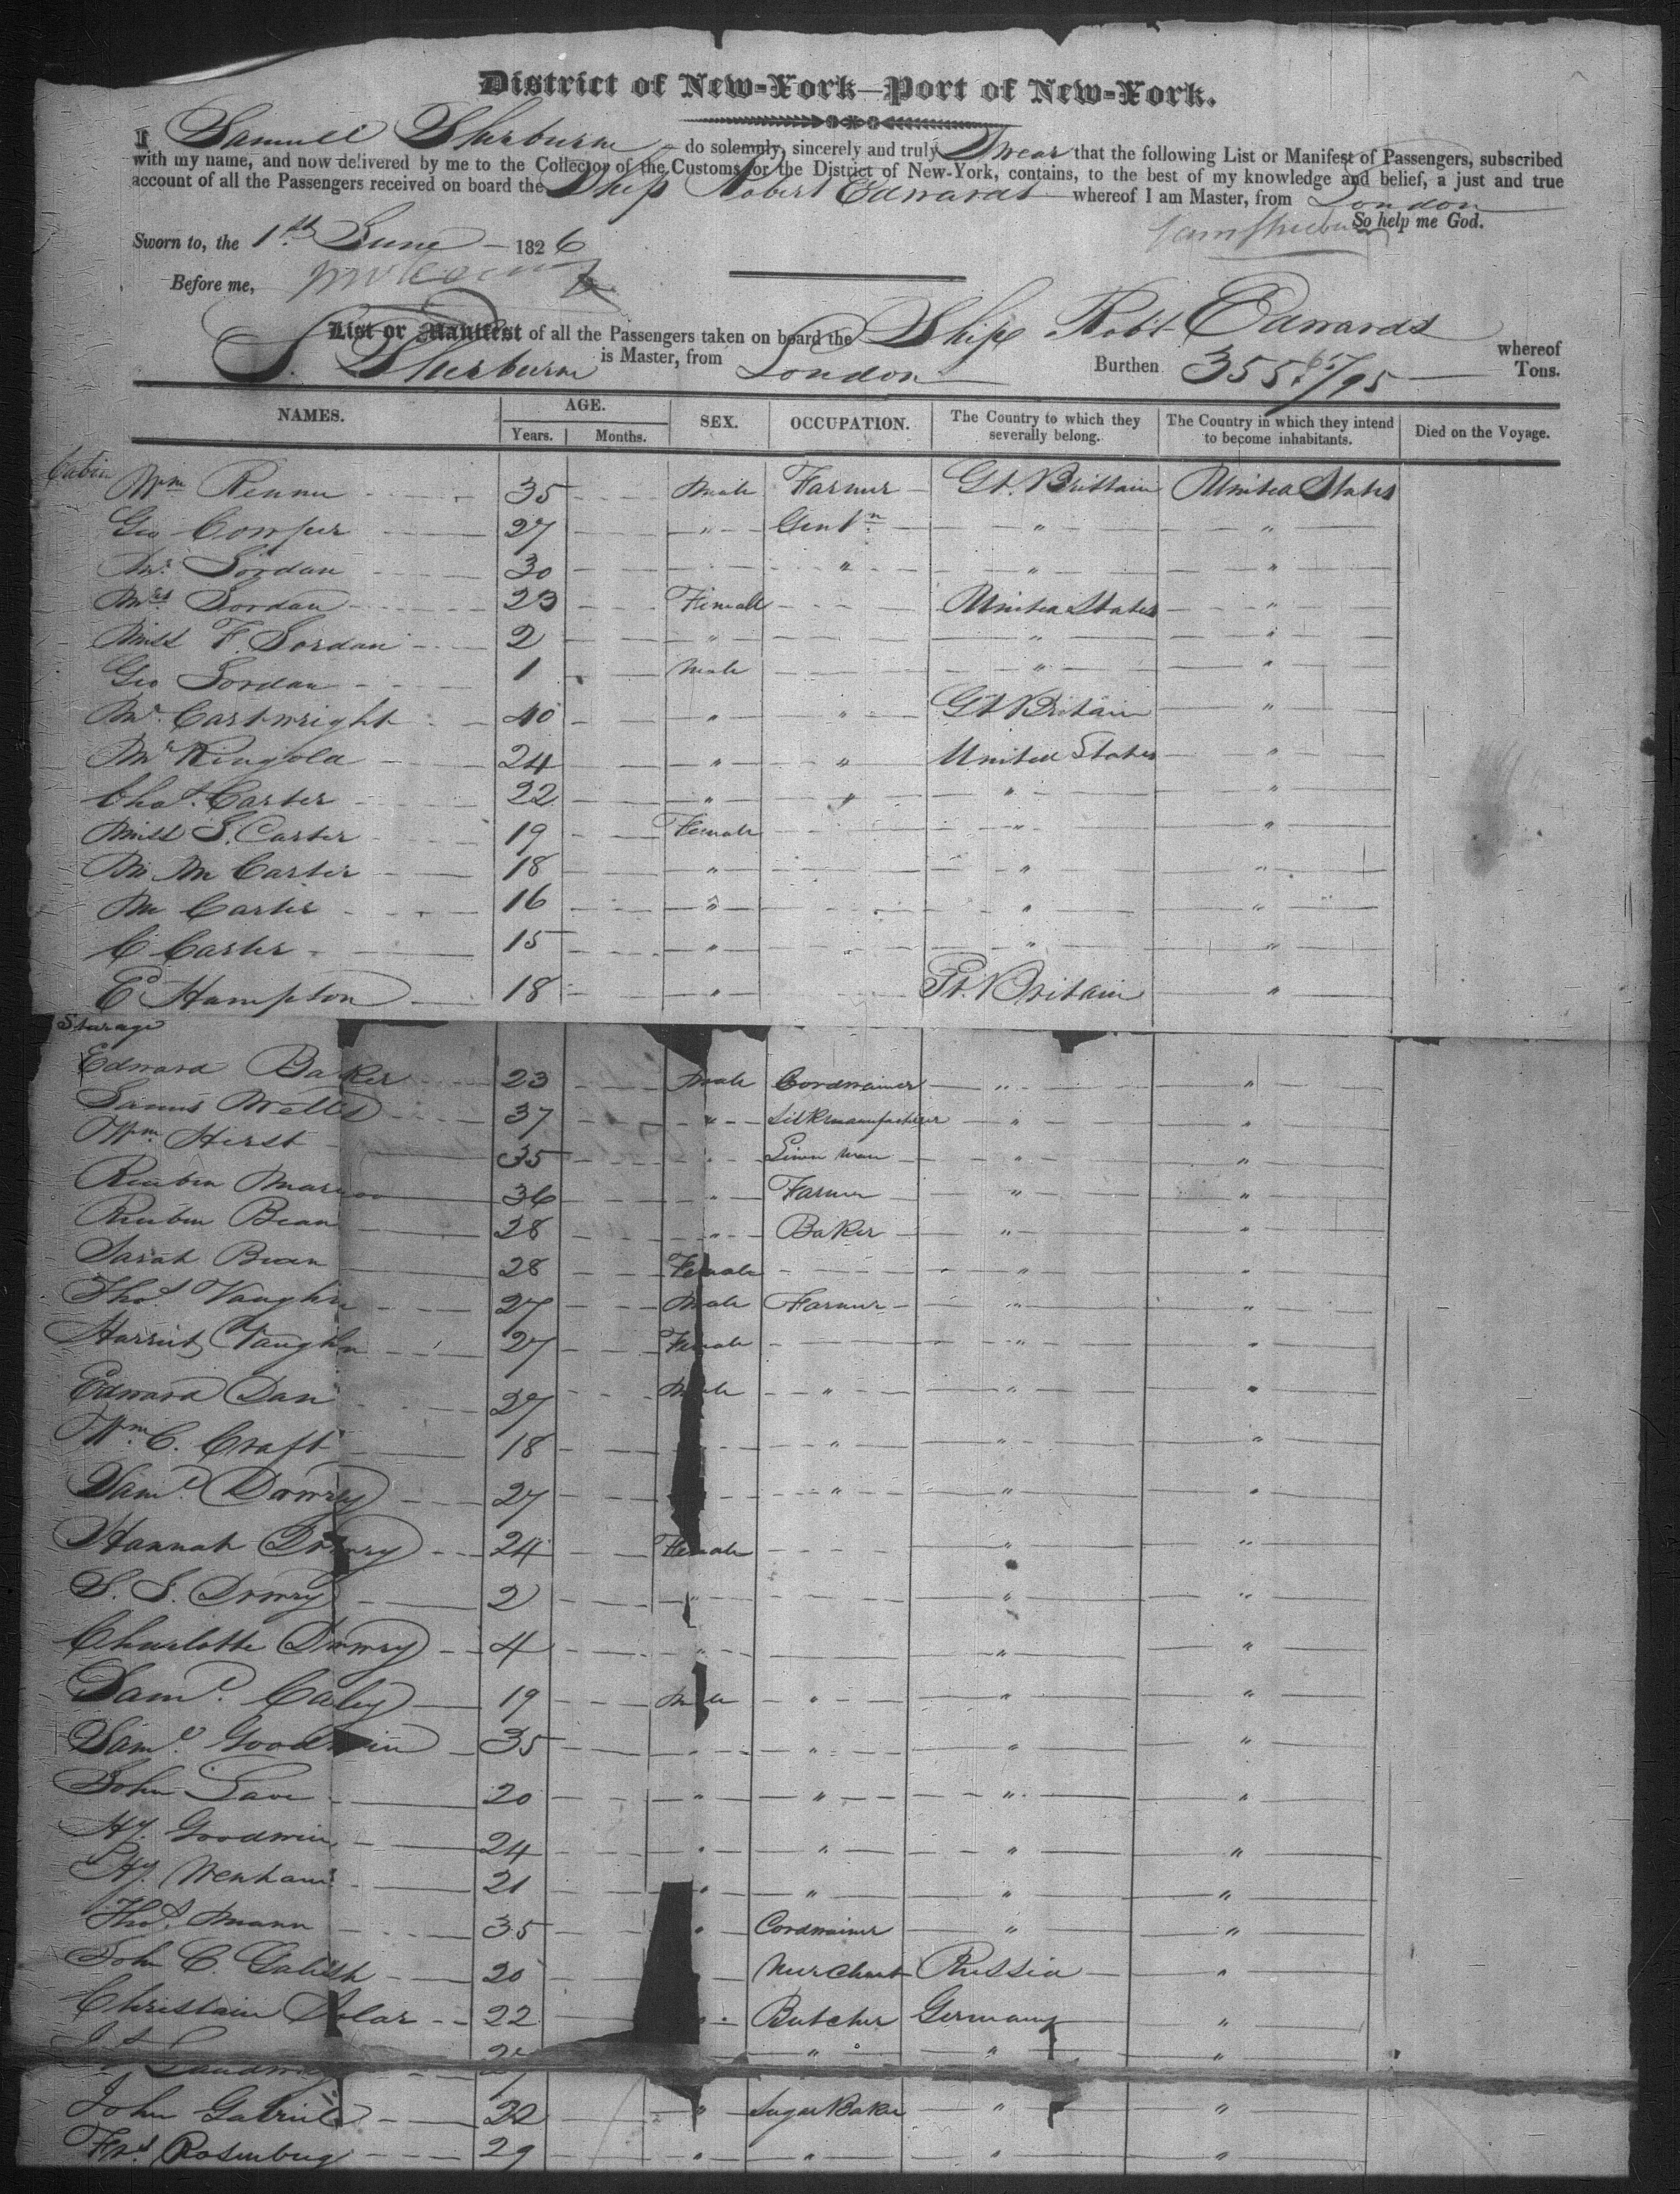 District of New-York—Port of New-York.
I Samuel Sherburne do solemnly, sincerely and truly Swear that the following List or Manifest of Passengers, subscribed
with my name, and now delivered by me to the Collector of the Customs for the District of New-York, contains, to the best of my knowledge and belief, a just and true
account of all the Passengers received on board the Ship Robert Edwards whereof I am Master, from London
So help me God.
Sworn to, the 1st June 1826
Before me,
List or Manifest of all the Passengers taken on board the Ship Robt Edwards whereof
S. Sherburne is Master, from London Burthen 355 67/95 Tons.
NAMES. AGE. SEX. OCCUPATION. The Country to which they severally belong. The Country in which they intend to become inhabitants. Died on the Voyage.
Years. Months.
Cabin
Wm Rennie 35 Male Farmer Gt. Brittain United States
Geo Cowper 27 " Gentn " "
Mr. Jordan 30 " " "
Mrs Jordan 23 Female United States "
Miss F. Jordan 2 " " "
Geo Jordan 1 Male " "
Mr. Cartwright 40 " " Gt Britain "
Mr Ringold 24 " " United States "
Chas. Carter 22 " " " "
Miss S. Carter 19 Female " "
M M Carter 18 " " "
M Carter 16 " " "
C Carter 15 " " "
E Hampton 18 " Gt. Britain "
Sterage
Edward Baker 23 Male Cordwainer " "
Wells 37 " Silkmanufacturer " "
Wm. Hirst 35 " " "
Reuben 36 " Farmer " "
Reuben Bean 28 " Baker " "
Sarah Bean 28 Female " "
Thos Vaughn 27 Male Farmer " "
Harriet Vaughn 27 Female " "
Edward Dan 27 Male " " "
Wm. C. Craft 18 " " "
Saml. Dowry 27 " " "
Hannah Dowry 24 Female " "
S. S. Dowry 2 " " "
Charlotte Dowry 4 " " "
Saml. Caley 19 Male " " "
Saml. Goodwin 35 " " " "
John 20 " " " "
Hy. Goodwin 24 " " " "
Hy. Wenham 21 " " " "
Thos. Mann 35 " Cordwainer " "
John C. 20 Merchant Russia "
Christain 22 " Butcher Germany "
" " "
John Gabriel 22 " Sugar Baker " "
Frs. Rosenberg 29 " " " "